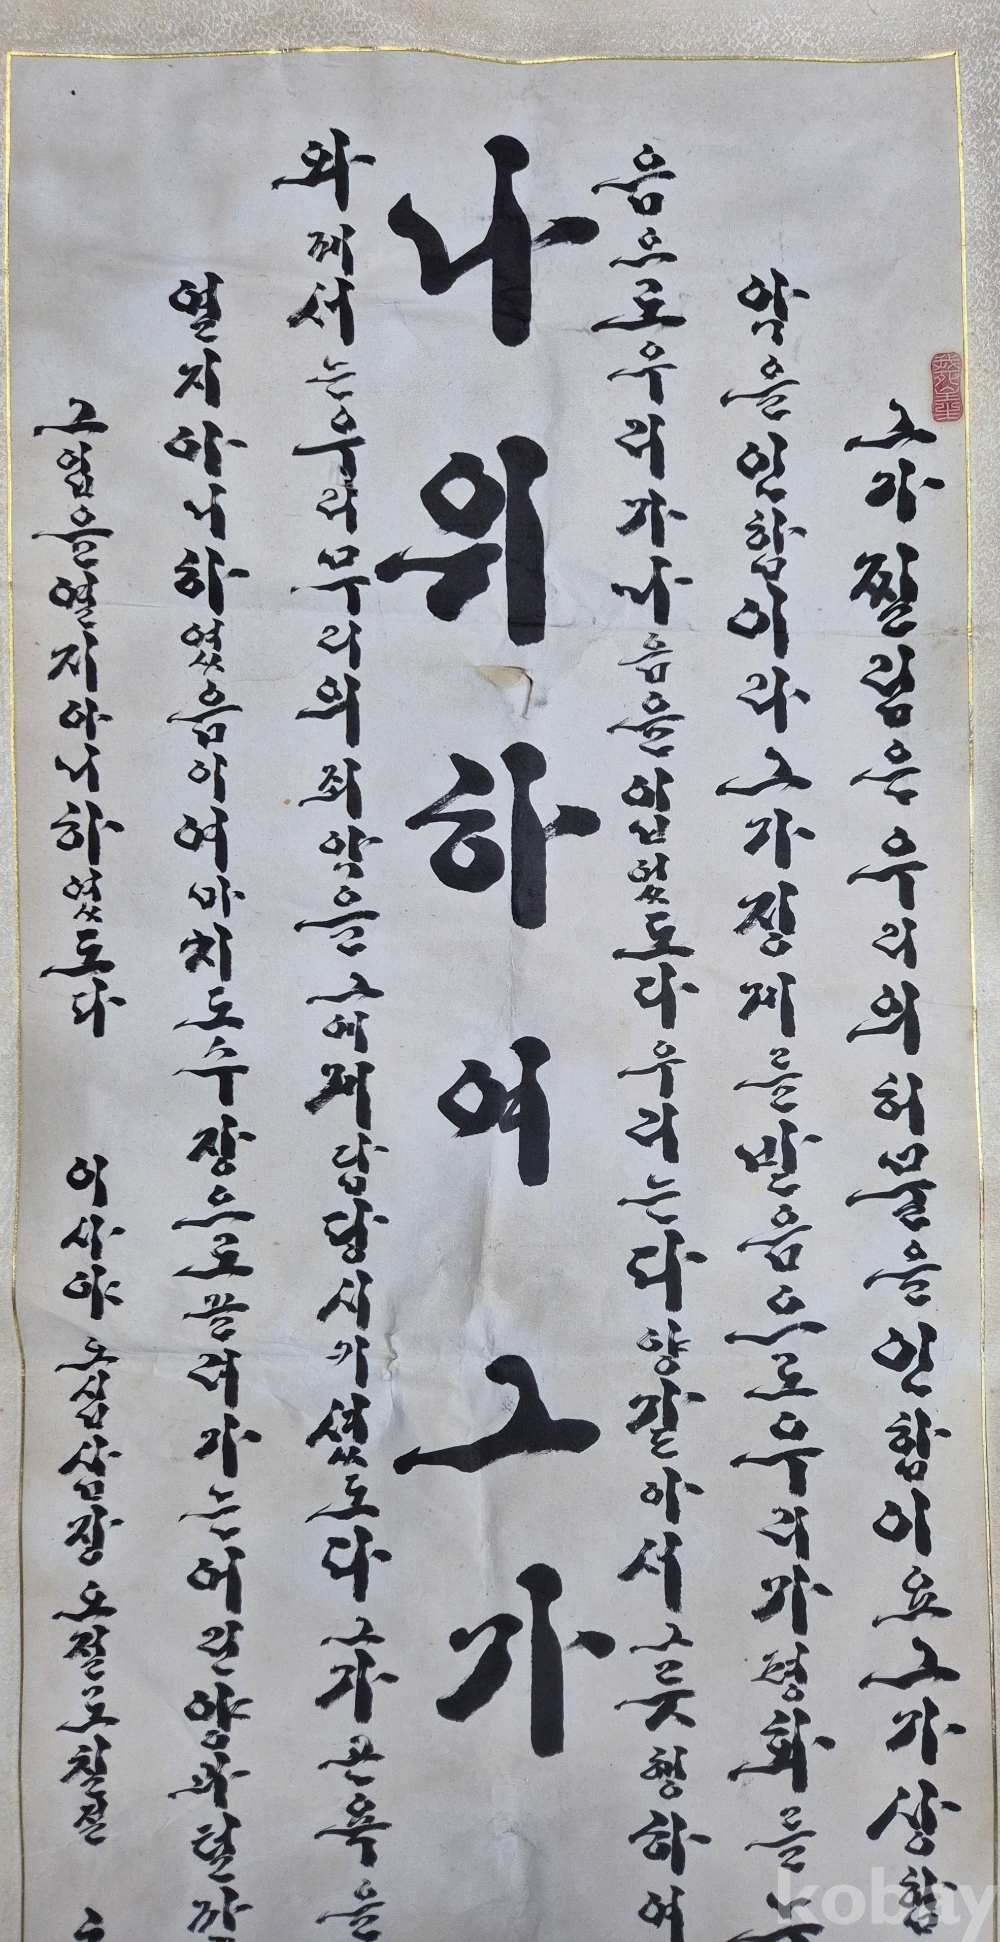 그가 찔림은 우리의 허물을 인함이요 그가 상함
악을 인함이라 그가 징계를 받음으로 우리가 평화를
음으로 우리가 나음을 입었도다 우리는 다 양 같아서 그릇 행하여
나 위하여 그가
와께서는 우리 무리의 죄악을 그에게 담당시키셨도다 그가 곤욕을
열지 아니하였음이여 마치 도수장으로 끌려가는 어린 양과 털 깎
그 입을 열지 아니하였도다 이사야 오십삼장 오절로 칠절
kobay